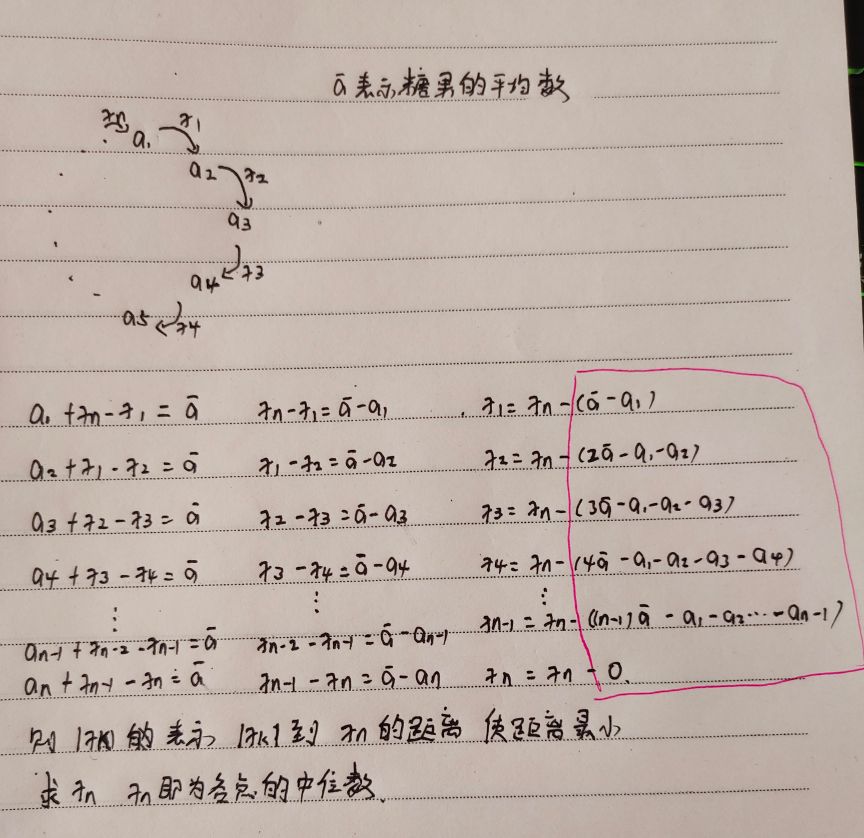 ā表示糖果的平均数
a₁ x₁
a₂ x₂
a₃
a₄ x₃
a₅ x₄
a₁+xn-x₁=ā xn-x₁=ā-a₁ x₁=xn-(ā-a₁)
a₂+x₁-x₂=ā x₁-x₂=ā-a₂ x₂=xn-(2ā-a₁-a₂)
a₃+x₂-x₃=ā x₂-x₃=ā-a₃ x₃=xn-(3ā-a₁-a₂-a₃)
a₄+x₃-x₄=ā x₃-x₄=ā-a₄ x₄=xn-(4ā-a₁-a₂-a₃-a₄)
⋮ ⋮ ⋮
an-1+xn-2-xn-1=ā xn-2-xn-1=ā-an-1 xn-1=xn-((n-1)ā-a₁-a₂…-an-1)
an+xn-1-xn=ā xn-1-xn=ā-an xn=xn-0.
则|xk|的表示|xk|到xn的距离 使距离最小
求xn xn即为各点的中位数.